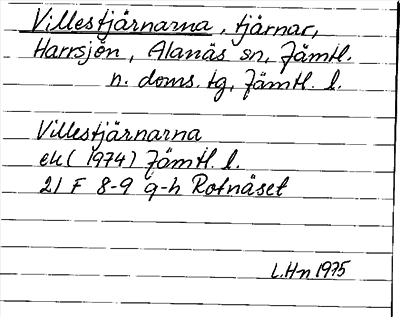 Villestjärnarna, tjärnar,
Harrsjön, Alanäs sn, Jämtl.
n. doms. tg, Jämtl. l.
Villestjärnarna
ek (1974) Jämtl. l.
21 F 8-9 g-h Rotnäset
L.Hn 1975